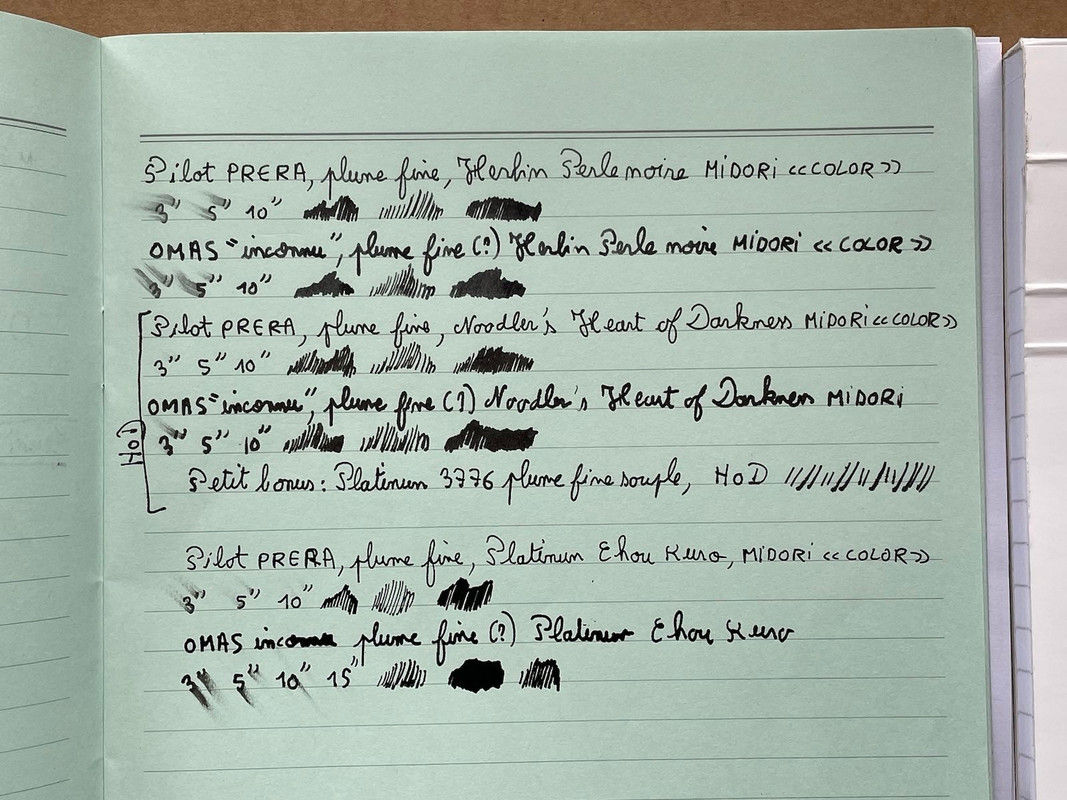 Pilot PRERA, plume fine, Herbin Perle noire MiDORi <<COLOR>>
3" 5" 10"
OMAS "inconnu", plume fine (?) Herbin Perle noire MiDORi <<COLOR>>
3" 5" 10"
Pilot PRERA, plume fine, Noodler's Heart of Darkness MiDORi <<COLOR>>
3" 5" 10"
OMAS "inconnu", plume fine (?) Noodler's Heart of Darkness MiDORi
3" 5" 10"
HoD
Petit bonus: Platinum 3776 plume fine souple, HoD
Pilot PRERA, plume fine, Platinum Chou Kuro, MiDORi <<COLOR>>
3" 5" 10"
OMAS inconnu plume fine (?) Platinum Chou Kuro
3" 5" 10" 15"